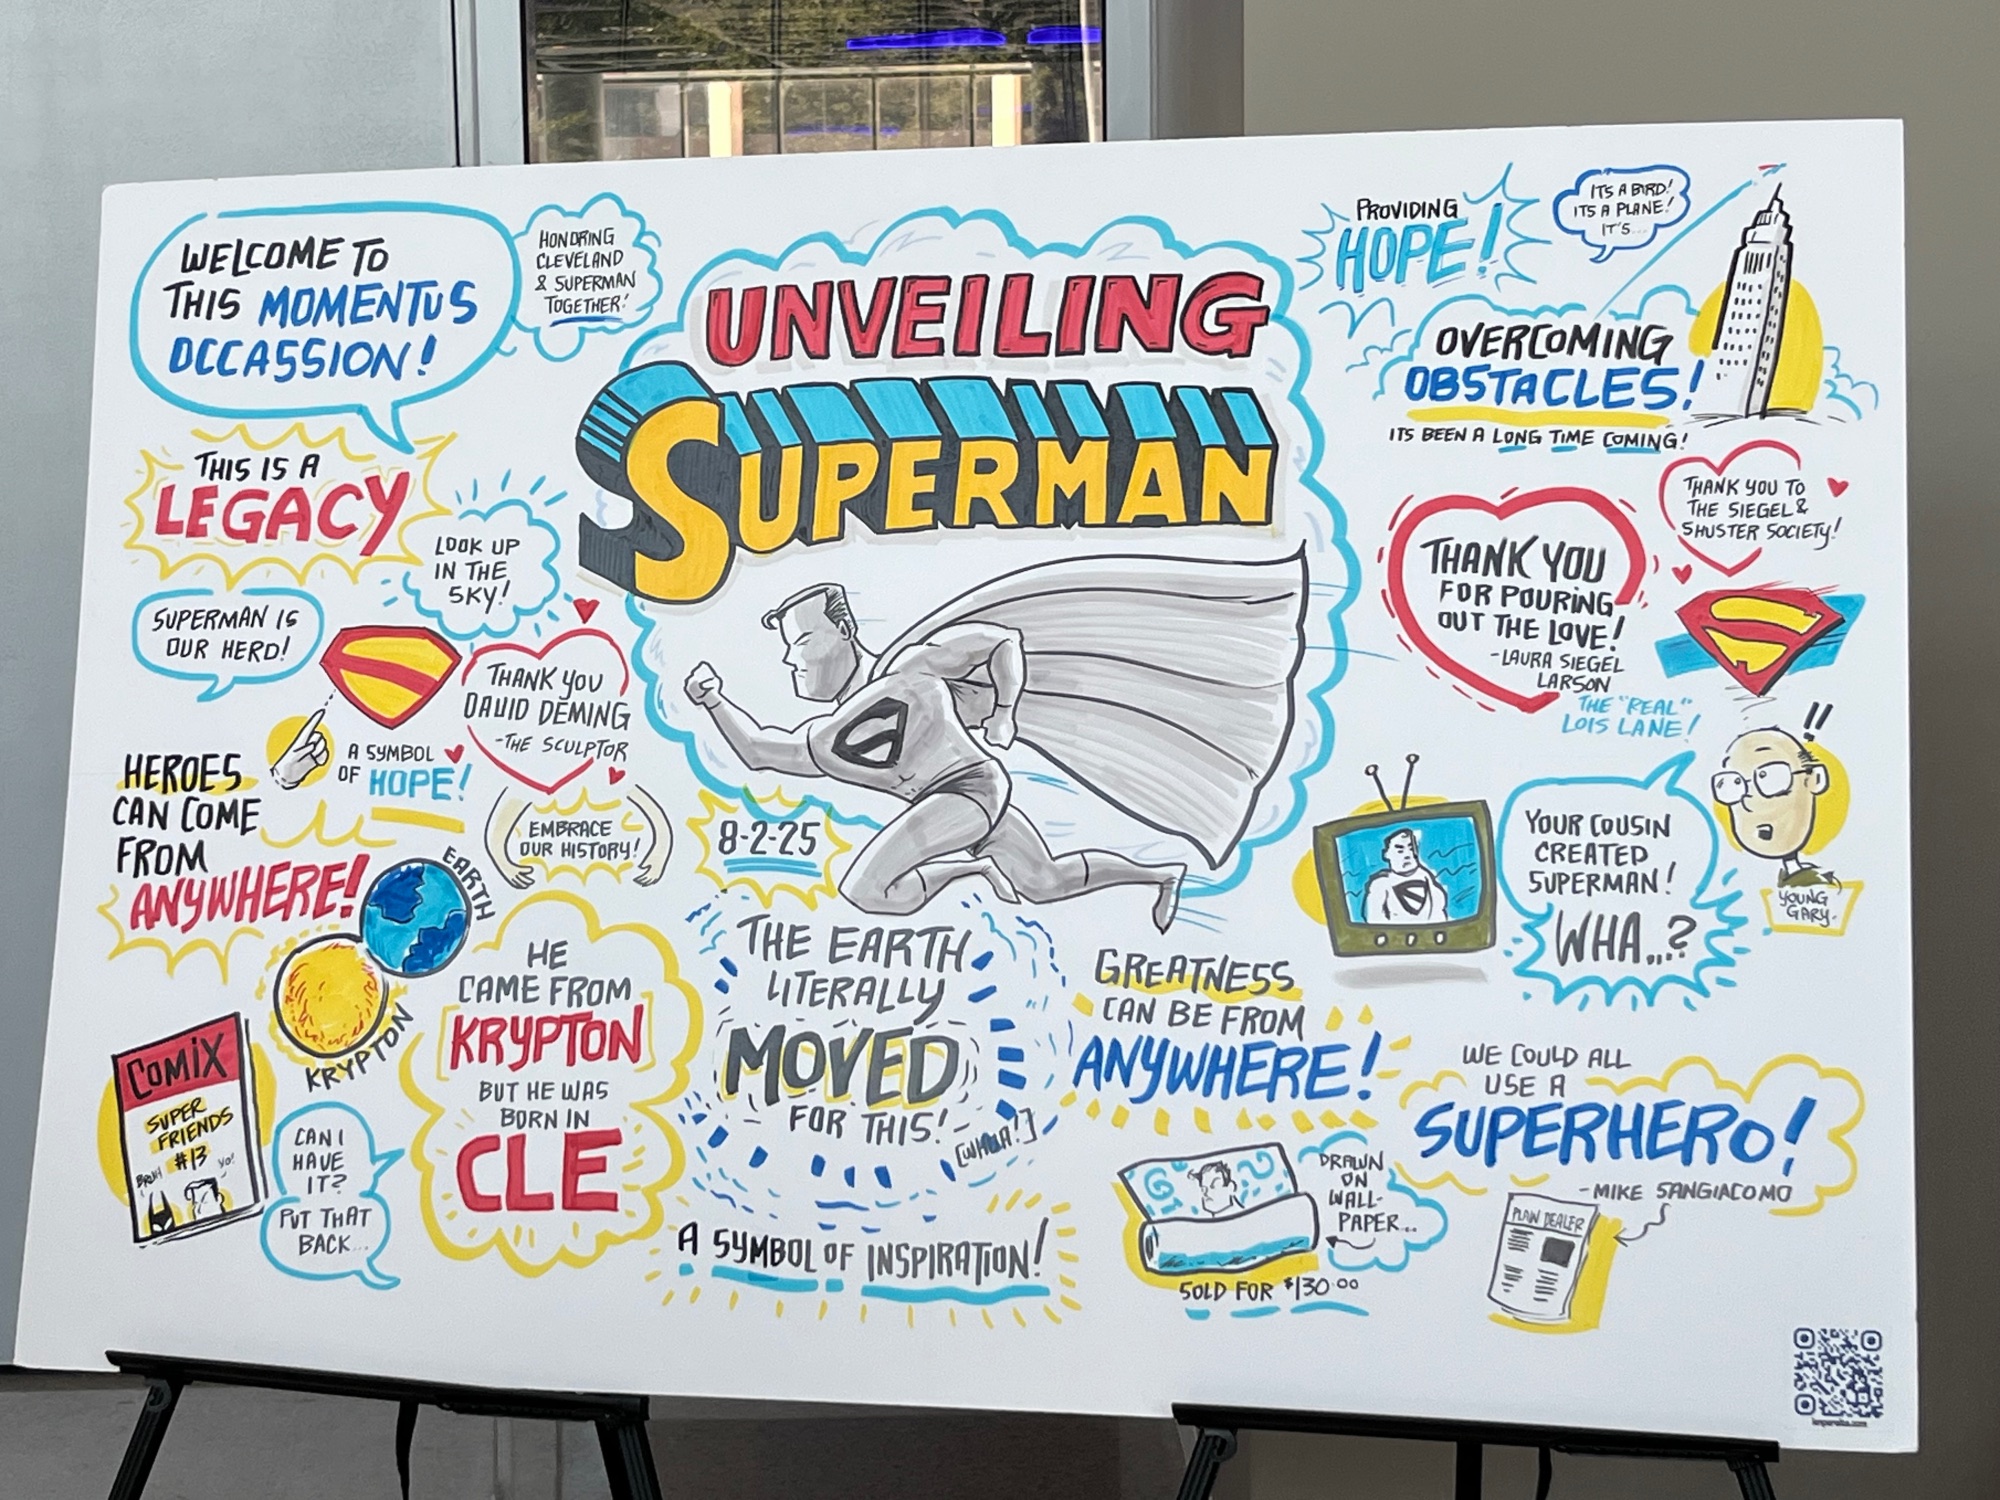 WELCOME TO
THIS MOMENTUS
OCCASSION!
HONORING
CLEVELAND
& SUPERMAN
TOGETHER!
THIS IS A
LEGACY
LOOK UP
IN THE
SKY!
SUPERMAN IS
OUR HERO!
THANK YOU
DAVID DEMING
-THE SCULPTOR
A SYMBOL
OF HOPE!
HEROES
CAN COME
FROM
ANYWHERE!
EMBRACE
OUR HISTORY!
EARTH
KRYPTON
COMIX
SUPER
FRIENDS
#13
BRUH
YO!
CAN I
HAVE
IT?
PUT THAT
BACK...
HE
CAME FROM
KRYPTON
BUT HE WAS
BORN IN
CLE
UNVEILING
SUPERMAN
S
8-2-25
THE EARTH
LITERALLY
MOVED
FOR THIS!
[WHOA!]
A SYMBOL OF INSPIRATION!
PROVIDING
HOPE!
ITS A BIRD!
ITS A PLANE!
IT'S...
OVERCOMING
OBSTACLES!
ITS BEEN A LONG TIME COMING!
THANK YOU TO
THE SIEGEL &
SHUSTER SOCIETY!
THANK YOU
FOR POURING
OUT THE LOVE!
-LAURA SIEGEL
LARSON
THE "REAL"
LOIS LANE!
!!
YOUR COUSIN
CREATED
SUPERMAN!
WHA...?
YOUNG
GARY-
GREATNESS
CAN BE FROM
ANYWHERE!
WE COULD ALL
USE A
SUPERHERO!
-MIKE SANGIACOMO
PLAIN DEALER
DRAWN
ON
WALL-
PAPER...
SOLD FOR $130.00